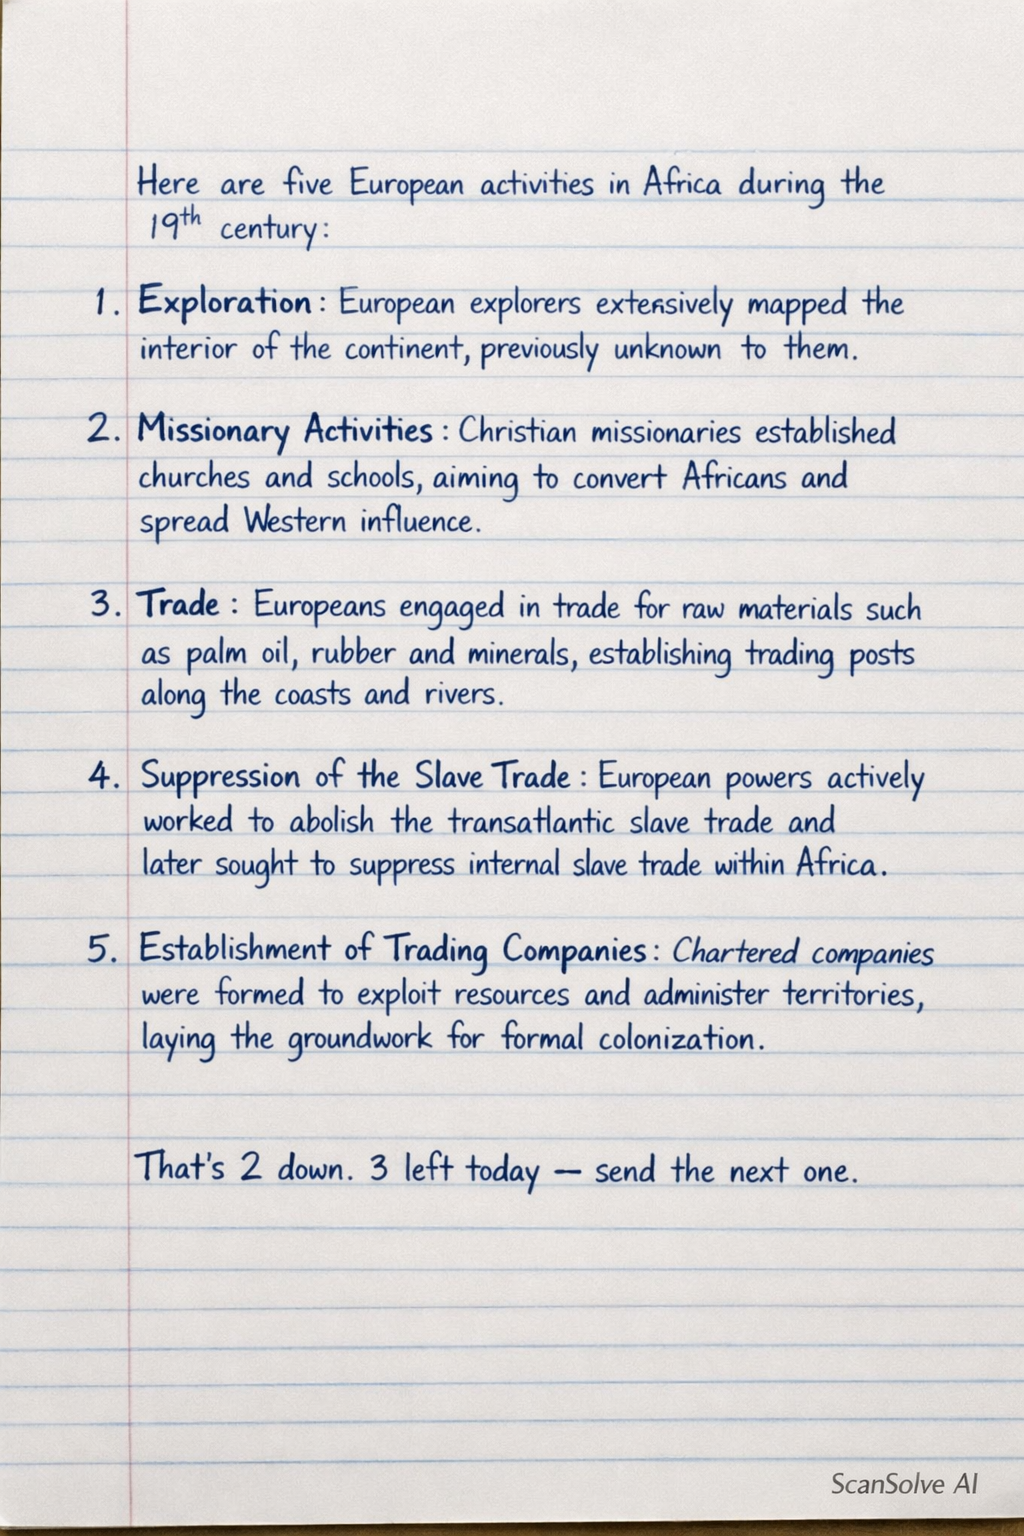 Here are five European activities in Africa during the
19th century:
1. Exploration: European explorers extensively mapped the
interior of the continent, previously unknown to them.
2. Missionary Activities: Christian missionaries established
churches and schools, aiming to convert Africans and
spread Western influence.
3. Trade: Europeans engaged in trade for raw materials such
as palm oil, rubber and minerals, establishing trading posts
along the coasts and rivers.
4. Suppression of the Slave Trade: European powers actively
worked to abolish the transatlantic slave trade and
later sought to suppress internal slave trade within Africa.
5. Establishment of Trading Companies: Chartered companies
were formed to exploit resources and administer territories,
laying the groundwork for formal colonization.
That's 2 down. 3 left today — send the next one.
ScanSolve AI